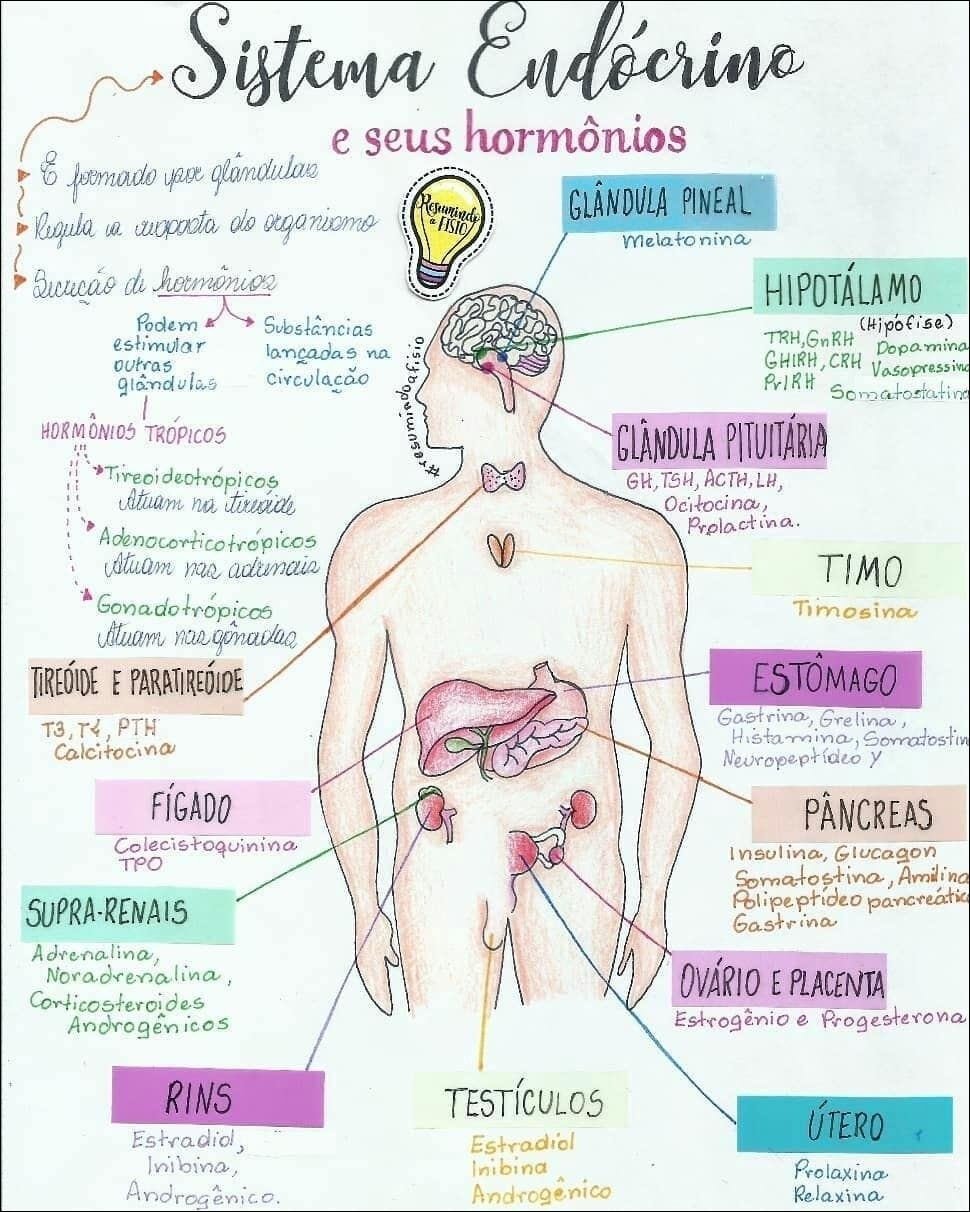 Sistema Endócrino
e seus hormônios
É formado por glândulas
Regula a resposta do organismo
Secreção de hormônios
Podem
estimular
outras
glândulas
Substâncias
lançadas na
circulação
HORMÔNIOS TRÓPICOS
Tireoideotrópicos
Atuam na tireóide
Adenocorticotrópicos
Atuam nas adrenais
Gonadotrópicos
Atuam nas gônadas
Resumindo
a FISIO
#resumindoafisio
GLÂNDULA PINEAL
Melatonina
HIPOTÁLAMO
(Hipófise)
TRH, GnRH Dopamina
GHIRH, CRH Vasopressina
PrIRH Somatostatina
GLÂNDULA PITUITÁRIA
GH, TSH, ACTH, LH,
Ocitocina,
Prolactina.
TIMO
Timosina
TIREÓIDE E PARATIREÓIDE
T3, T4, PTH
Calcitocina
ESTÔMAGO
Gastrina, Grelina,
Histamina, Somatostin
Neuropeptídeo Y
FÍGADO
Colecistoquinina
TPO
PÂNCREAS
Insulina, Glucagon
Somatostina, Amilina
Polipeptídeo pancreátic
Gastrina
SUPRA-RENAIS
Adrenalina,
Noradrenalina,
Corticosteroides
Androgênicos
OVÁRIO E PLACENTA
Estrogênio e Progesterona
RINS
Estradiol,
Inibina,
Androgênico.
TESTÍCULOS
Estradiol
Inibina
Androgênico
ÚTERO
Prolaxina
Relaxina